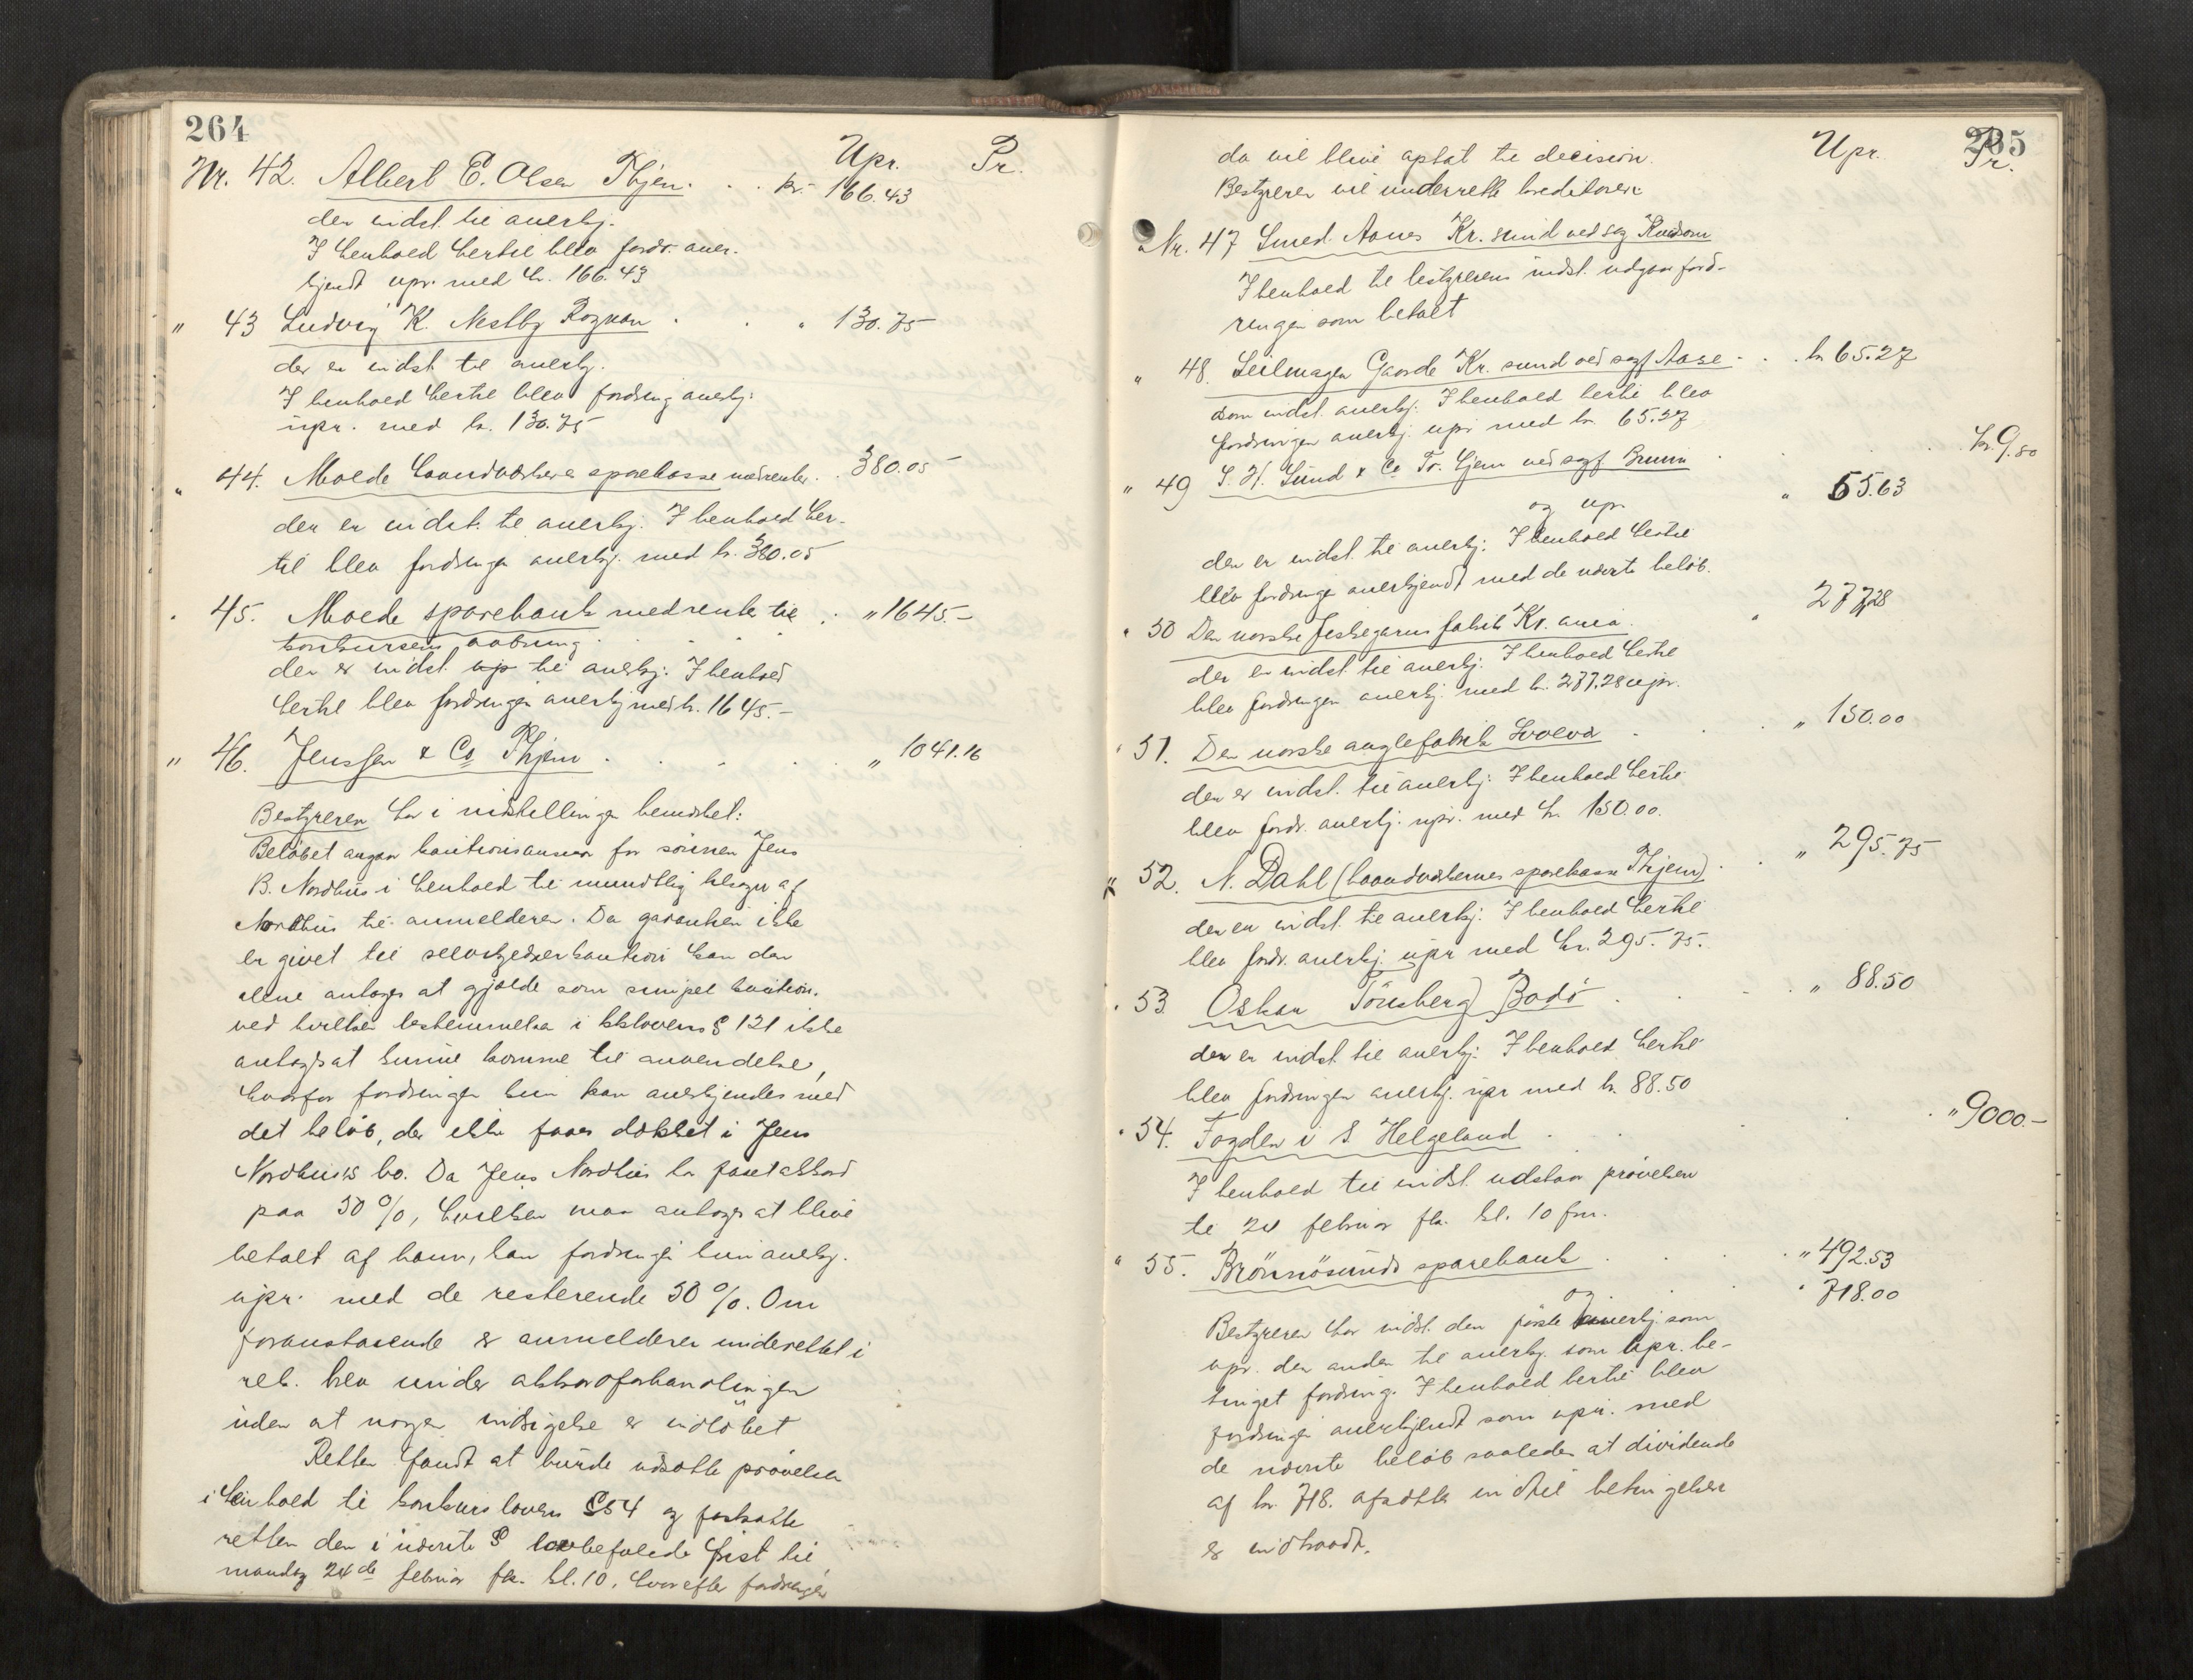 264
Upr. Pr.
Nr. 42. Albert E. Olsen Thjem. . . kr. 166.43
der indst. til anerkj.
I henhold hertil blev fordr. aner-
kjendt upr. med kr. 166.43
" 43 Ludvig K. Nestby Rognan . . " 130.75
der er indst. til anerkj.
I henhold hertil blev fordring anerkj.
upr. med kr. 130.75
" 44. Molde haandværkeres sparekasse med renter . . 380.05
der er indst. til anerkj. I henhold her-
til blev fordringen anerkj. med kr. 380.05
" 45. Molde sparebank med rente til . " 1645.-
konkursens aabning
der er indst. til anerkj. I henhold
hertil blev fordringen anerkj. med kr. 1645.-
" 46. Jenssen & Co Thjem . . . " 1041.16
Bestyreren har i indstillingen bemærket:
Beløbet angaar kautionsansvar for sønnen Jens
B. Nordhus i henhold til mundtlig tilsagn af
Nordhus til anmelderen. Da garantien ikke
er givet til selvskyldnerkaution kan den
alene antages at gjælde som simpel kaution.
ved hvilken bestemmelsen i kklovens § 121 ikke
antages at kunne komme til anvendelse,
hvorfor fordringen kun kan anerkjendes med
det beløb, der ikke faaes dækket i Jens
Nordhus's bo. Da Jens Nordhus har faaet akkord
paa 50 %, hvilken maa antages at blive
betalt af ham, kan fordringen kun anerkj.
upr. med de resterende 50 %. Om
foranstaaende er anmelderen underrettet i
rek. brev under akkordforhandlingen
uden at nogen indsigelse er indløbet
Retten fandt at burde udsætte prøvelsen
i henhold til konkurslovens § 54 og fastsatte
retten den i nævnte § lovbefalede frist til
mandag 24de februar fk. kl. 10, hvorefter fordringen
265
Upr. Pr.
da vil blive optat til decision.
Bestyreren vil underrette kreditoren
Nr. 47 Smed Aanes Kr. sund ved sag
I henhold til bestyrerens indst. udgaar ford-
ringen som betalt
" 48. Seilmager Gaarde Kr. sund ved sagf. Aase . . kr. 65.27
som indst. anerkj. I henhold hertil blev
fordringen anerkj. upr. med kr. 65.27
" 49 S. H. Lund & Co Tr. hjem ved sagf. Bruun . . . kr. 9.80
og upr. " 65.63
der er indst. til anerkj. I henhold hertil
blev fordringen anerkjendt med de nævnte beløb.
" 50 Den norske fiskegarns fabrik Kr. ania . " 277.28
der er indst. til anerkj. I henhold hertil
blev fordringen anerkj. med kr. 277.28 upr.
" 51. Den norske anglefabrik Svolvær . . " 150.00
der er indst. til anerkj. I henhold hertil
blev fordr. anerkj. upr. med kr. 150.00.
" 52. N. Dahl (haandværkernes sparekasse Thjem) . . " 295.75
der er indst. til anerkj. I henhold hertil
blev fordr. anerkj. upr med kr. 295.75.
" 53 Oskar Tønsberg Bodø . . . " 88.50
der er indst. til anerkj. I henhold hertil
blev fordringen anerkj. upr med kr. 88.50
" 54. Fogden i S. Helgeland . . . " 9000.-
I henhold til indst. udstaar prøvelsen
til 24 februar fk. kl. 10 fm.
" 55. Brønnøsunds sparebank . . . " 492.53
og . " 718.00
Bestyreren har indst. den første anerkj. som
upr. den anden til anerkj. som upr. be-
tinget fordring. I henhold hertil blev
fordringen anerkjendt som upr. med
de nævnte beløb saaledes at dividende
af kr. 718. afsættes indtil betingelsen
er indtraadt.